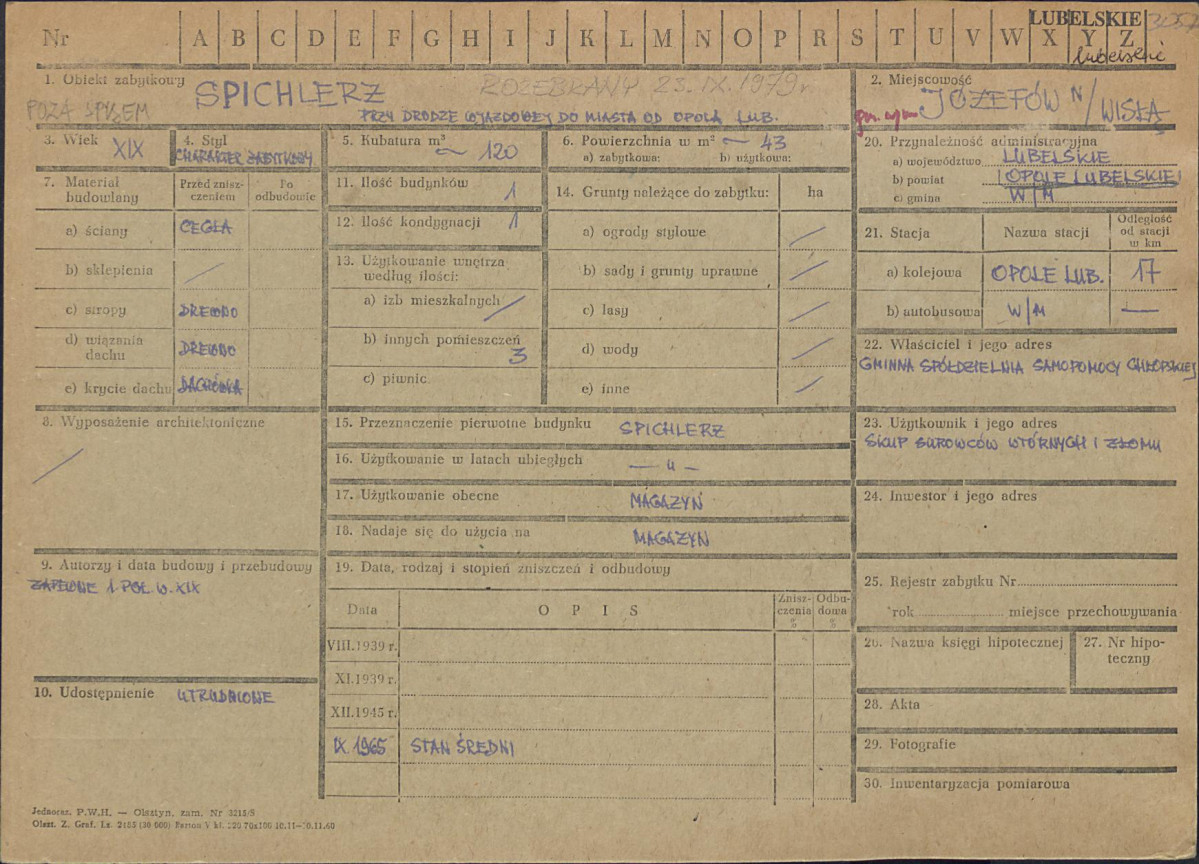 LUBELSKIE
Nr A B C D E F G H I J K L M N O P R S T U V W X Y Z
lubelskie
1. Obiekt zabytkowy SPICHLERZ ROZEBRANY 23.IX.1979 r.
POZA SPISEM
PRZY DRODZE WJAZDOWEJ DO MIASTA OD OPOLA LUB.
2. Miejscowość
JÓZEFÓW N/WISŁĄ
3. Wiek XIX
4. Styl
CHARAKTER ZABYTKOWY
5. Kubatura m³ ~ 120
6. Powierzchnia w m² ~ 43
a) zabytkowa: b) użytkowa:
7. Materiał budowlany
Przed zniszczeniem
Po odbudowie
a) ściany CEGŁA
b) sklepienia /
c) stropy DREWNO
d) wiązania dachu DREWNO
e) krycie dachu DACHÓWKA
8. Wyposażenie architektoniczne
/
9. Autorzy i data budowy i przebudowy
ZAPEWNE 1 POŁ. W. XIX
10. Udostępnienie UTRUDNIONE
11. Ilość budynków 1
12. Ilość kondygnacji 1
13. Użytkowanie wnętrza
według ilości:
a) izb mieszkalnych /
b) innych pomieszczeń 3
c) piwnic
14. Grunty należące do zabytku: ha
a) ogrody stylowe /
b) sady i grunty uprawne /
c) lasy /
d) wody /
e) inne /
15. Przeznaczenie pierwotne budynku SPICHLERZ
16. Użytkowanie w latach ubiegłych — " —
17. Użytkowanie obecne MAGAZYN
18. Nadaje się do użycia na MAGAZYN
19. Data, rodzaj i stopień zniszczeń i odbudowy
Data
O P I S
Zniszczenia %
Odbudowa %
VIII.1939 r.
XI.1939 r.
XII.1945 r.
IX.1965 STAN ŚREDNI
20. Przynależność administracyjna
a) województwo LUBELSKIE
b) powiat OPOLE LUBELSKIE
c) gmina W/M
21. Stacja
Nazwa stacji
Odległość od stacji w km
a) kolejowa OPOLE LUB. 17
b) autobusowa W/M —
22. Właściciel i jego adres
GMINNA SPÓŁDZIELNIA SAMOPOMOCY CHŁOPSKIEJ
23. Użytkownik i jego adres
SKUP SUROWCÓW WTÓRNYCH I ZŁOMU
24. Inwestor i jego adres
25. Rejestr zabytku Nr
rok miejsce przechowywania
26. Nazwa księgi hipotecznej
27. Nr hipoteczny
28. Akta
29. Fotografie
30. Inwentaryzacja pomiarowa
Jednoraz. P.W.H. — Olsztyn, zam. Nr 3215/S